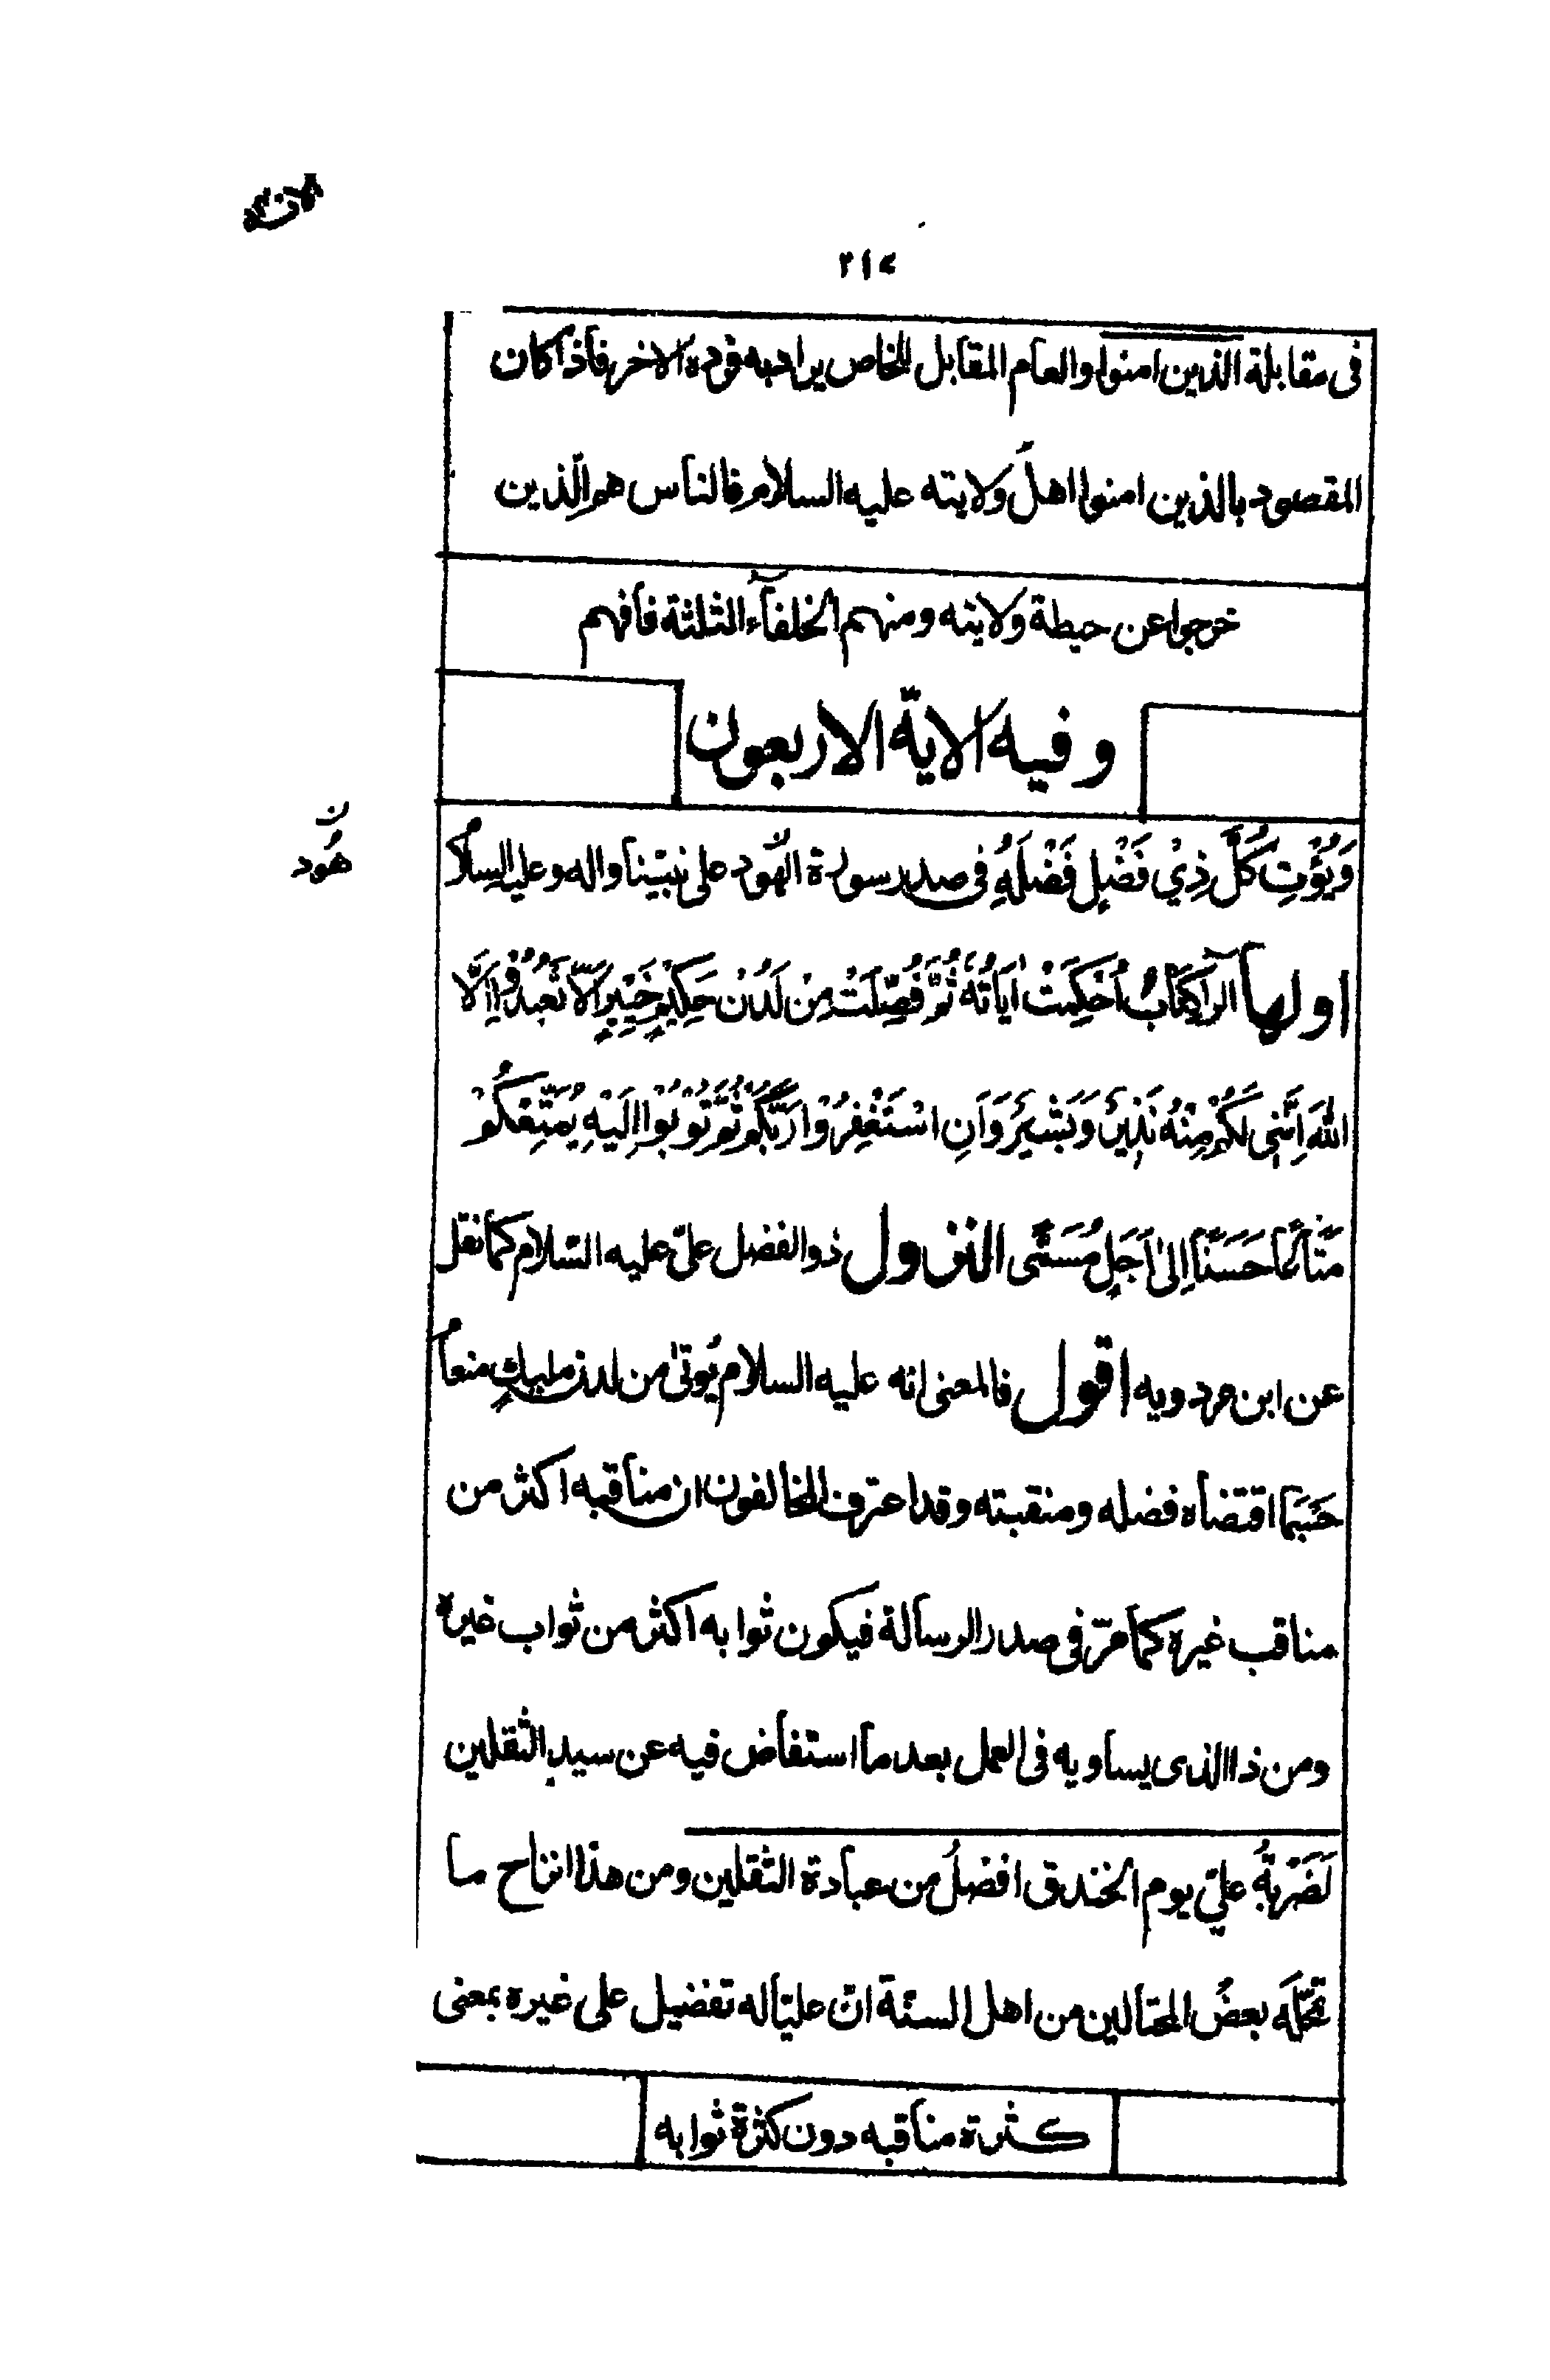 ٢١٧
فى مقابلة الذين امنوا والعام المقابل للخاص يراد به فرده الاخر فاذا كان
المقصود بالذين امنوا اهلَ ولايته عليه السلام فالناس هم الّذين
خرجوا عن حيطة ولايته ومنهم الخلفآء الثلثة فافهم
وفيه الاية الاربعون
هُود
وَيُؤْتِ كُلَّ ذِيْ فَضْلٍ فَضْلَهُ فى صدر سورة الهُود على نبيّنا واله وعليه السلام
اولها الر كِتَابٌ اُحْكِمَتْ اٰيَاتُهُ ثُمَّ فُصِّلَتْ مِنْ لَدُنْ حَكِيْمٍ خَبِيْرٍ اَلَّا تَعْبُدُوْا اِلَّا
اللهَ اِنَّنِى لَكُمْ مِنْهُ نَذِيْرٌ وَبَشِيْرٌ وَاَنِ اسْتَغْفِرُوْا رَبَّكُمْ ثُمَّ تُوْبُوْا اِلَيْهِ يُمَتِّعْكُمْ
مَتَاعًا حَسَنًا اِلىٰ اَجَلٍ مُسَمًّى النزول ذوالفضل علىّ عليه السّلام كما نقل
عن ابن مردويه اقول فالمعنى انه عليه السلام يُوتىٰ من لدن مليكٍ منعام
حَسَبَما اقتضاه فضله ومنقبته وقد اعترف المخالفون ان مناقبه اكثر من
مناقب غيره كما مرّ فى صدر الرسالة فيكون ثوابه اكثر من ثواب غيره
ومن ذا الذى يساويه فى العمل بعد ما استفاض فيه عن سيد الثقلين
لَضَرْبَةُ علىّ يوم الخندق افضلُ من عبادة الثقلين ومن هذا انزاح ما
تمحّلَه بعضُ المحتالين من اهل السنّة انّ عليّا له تفضيل على غيره بمعنى
كثرة مناقبه دون كثرة ثوابه